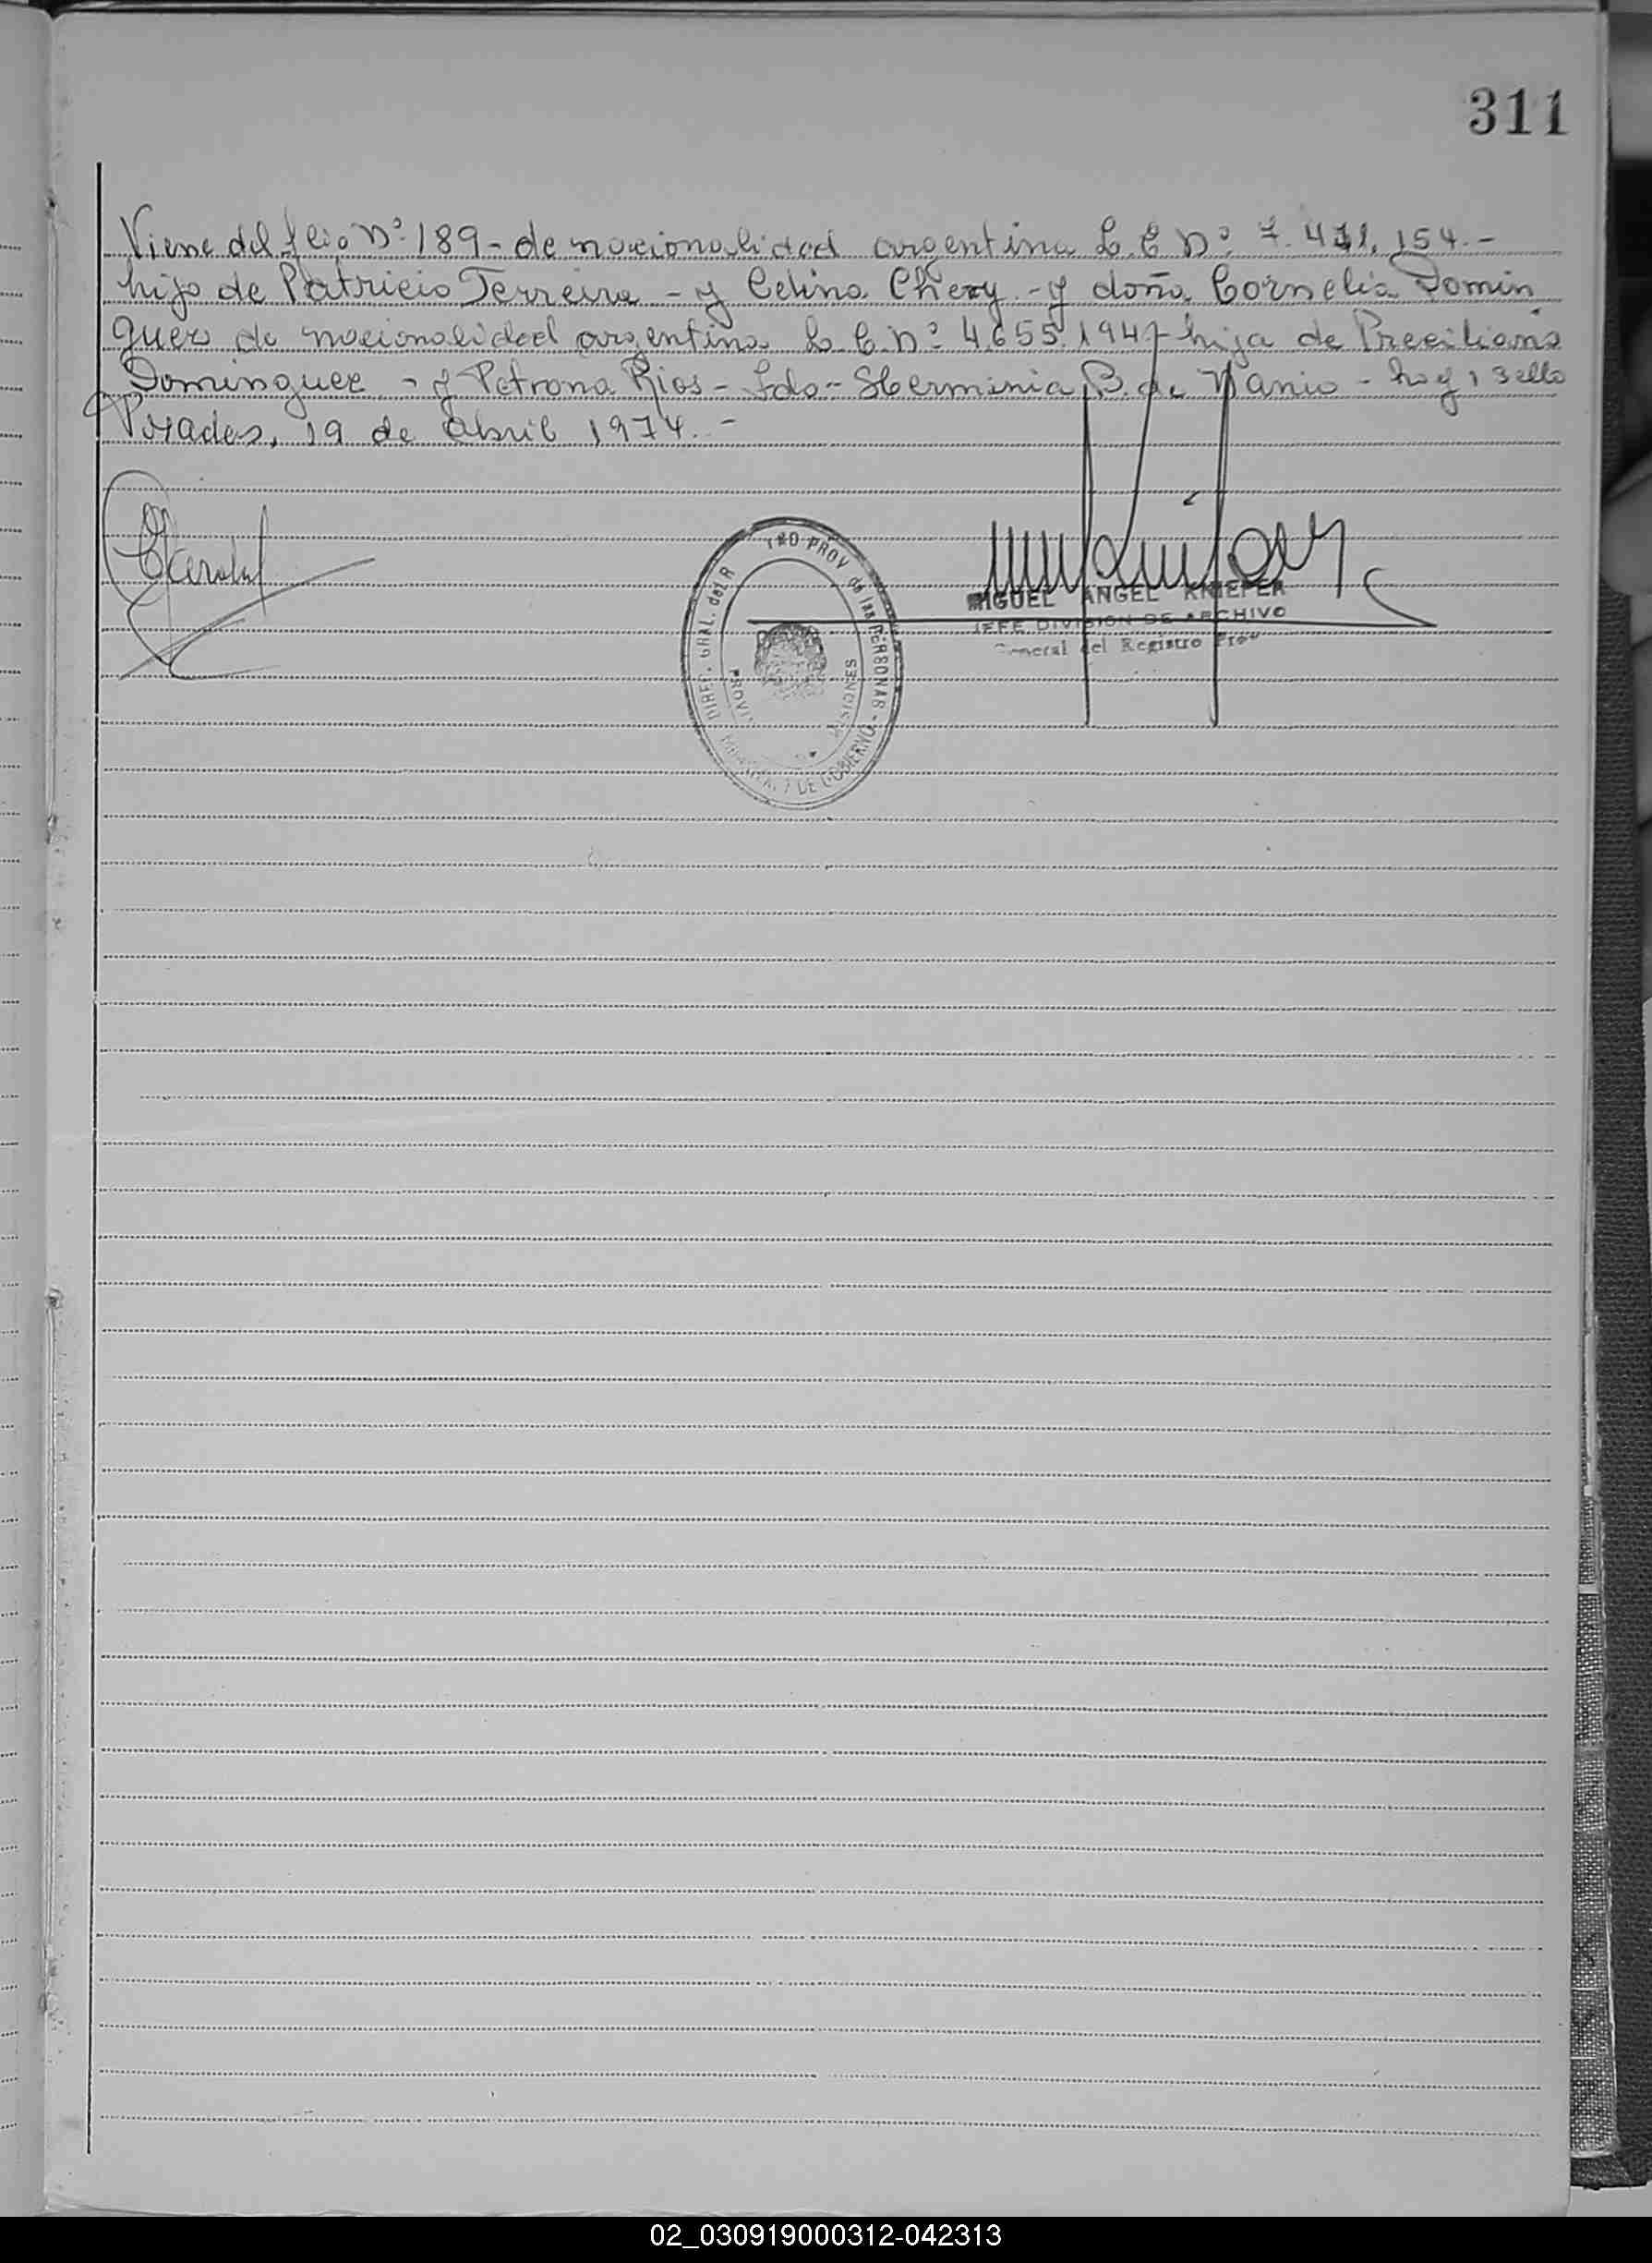 311
Viene del folio Nº 189 - de nacionalidad argentina L. E Nº 7.411.154.-
hijo de Patricio Ferreira - y Celina Chery - y doña Cornelia Domin
guez de nacionalidad argentina L. C. nº 4.655.194 hija de Preciliano
Dominguez - y Petrona Rios - Fdo - Herminia B. de Nanio - hay 1 sello
Posadas, 19 de Abril 1974.-
MIGUEL ANGEL KNIEPER
JEFE DIVISION DE ARCHIVO
General del Registro Prov
DIREC. GRAL. del R PROV de las PERSONAS - DE GOBIERNO
02_030919000312-042313